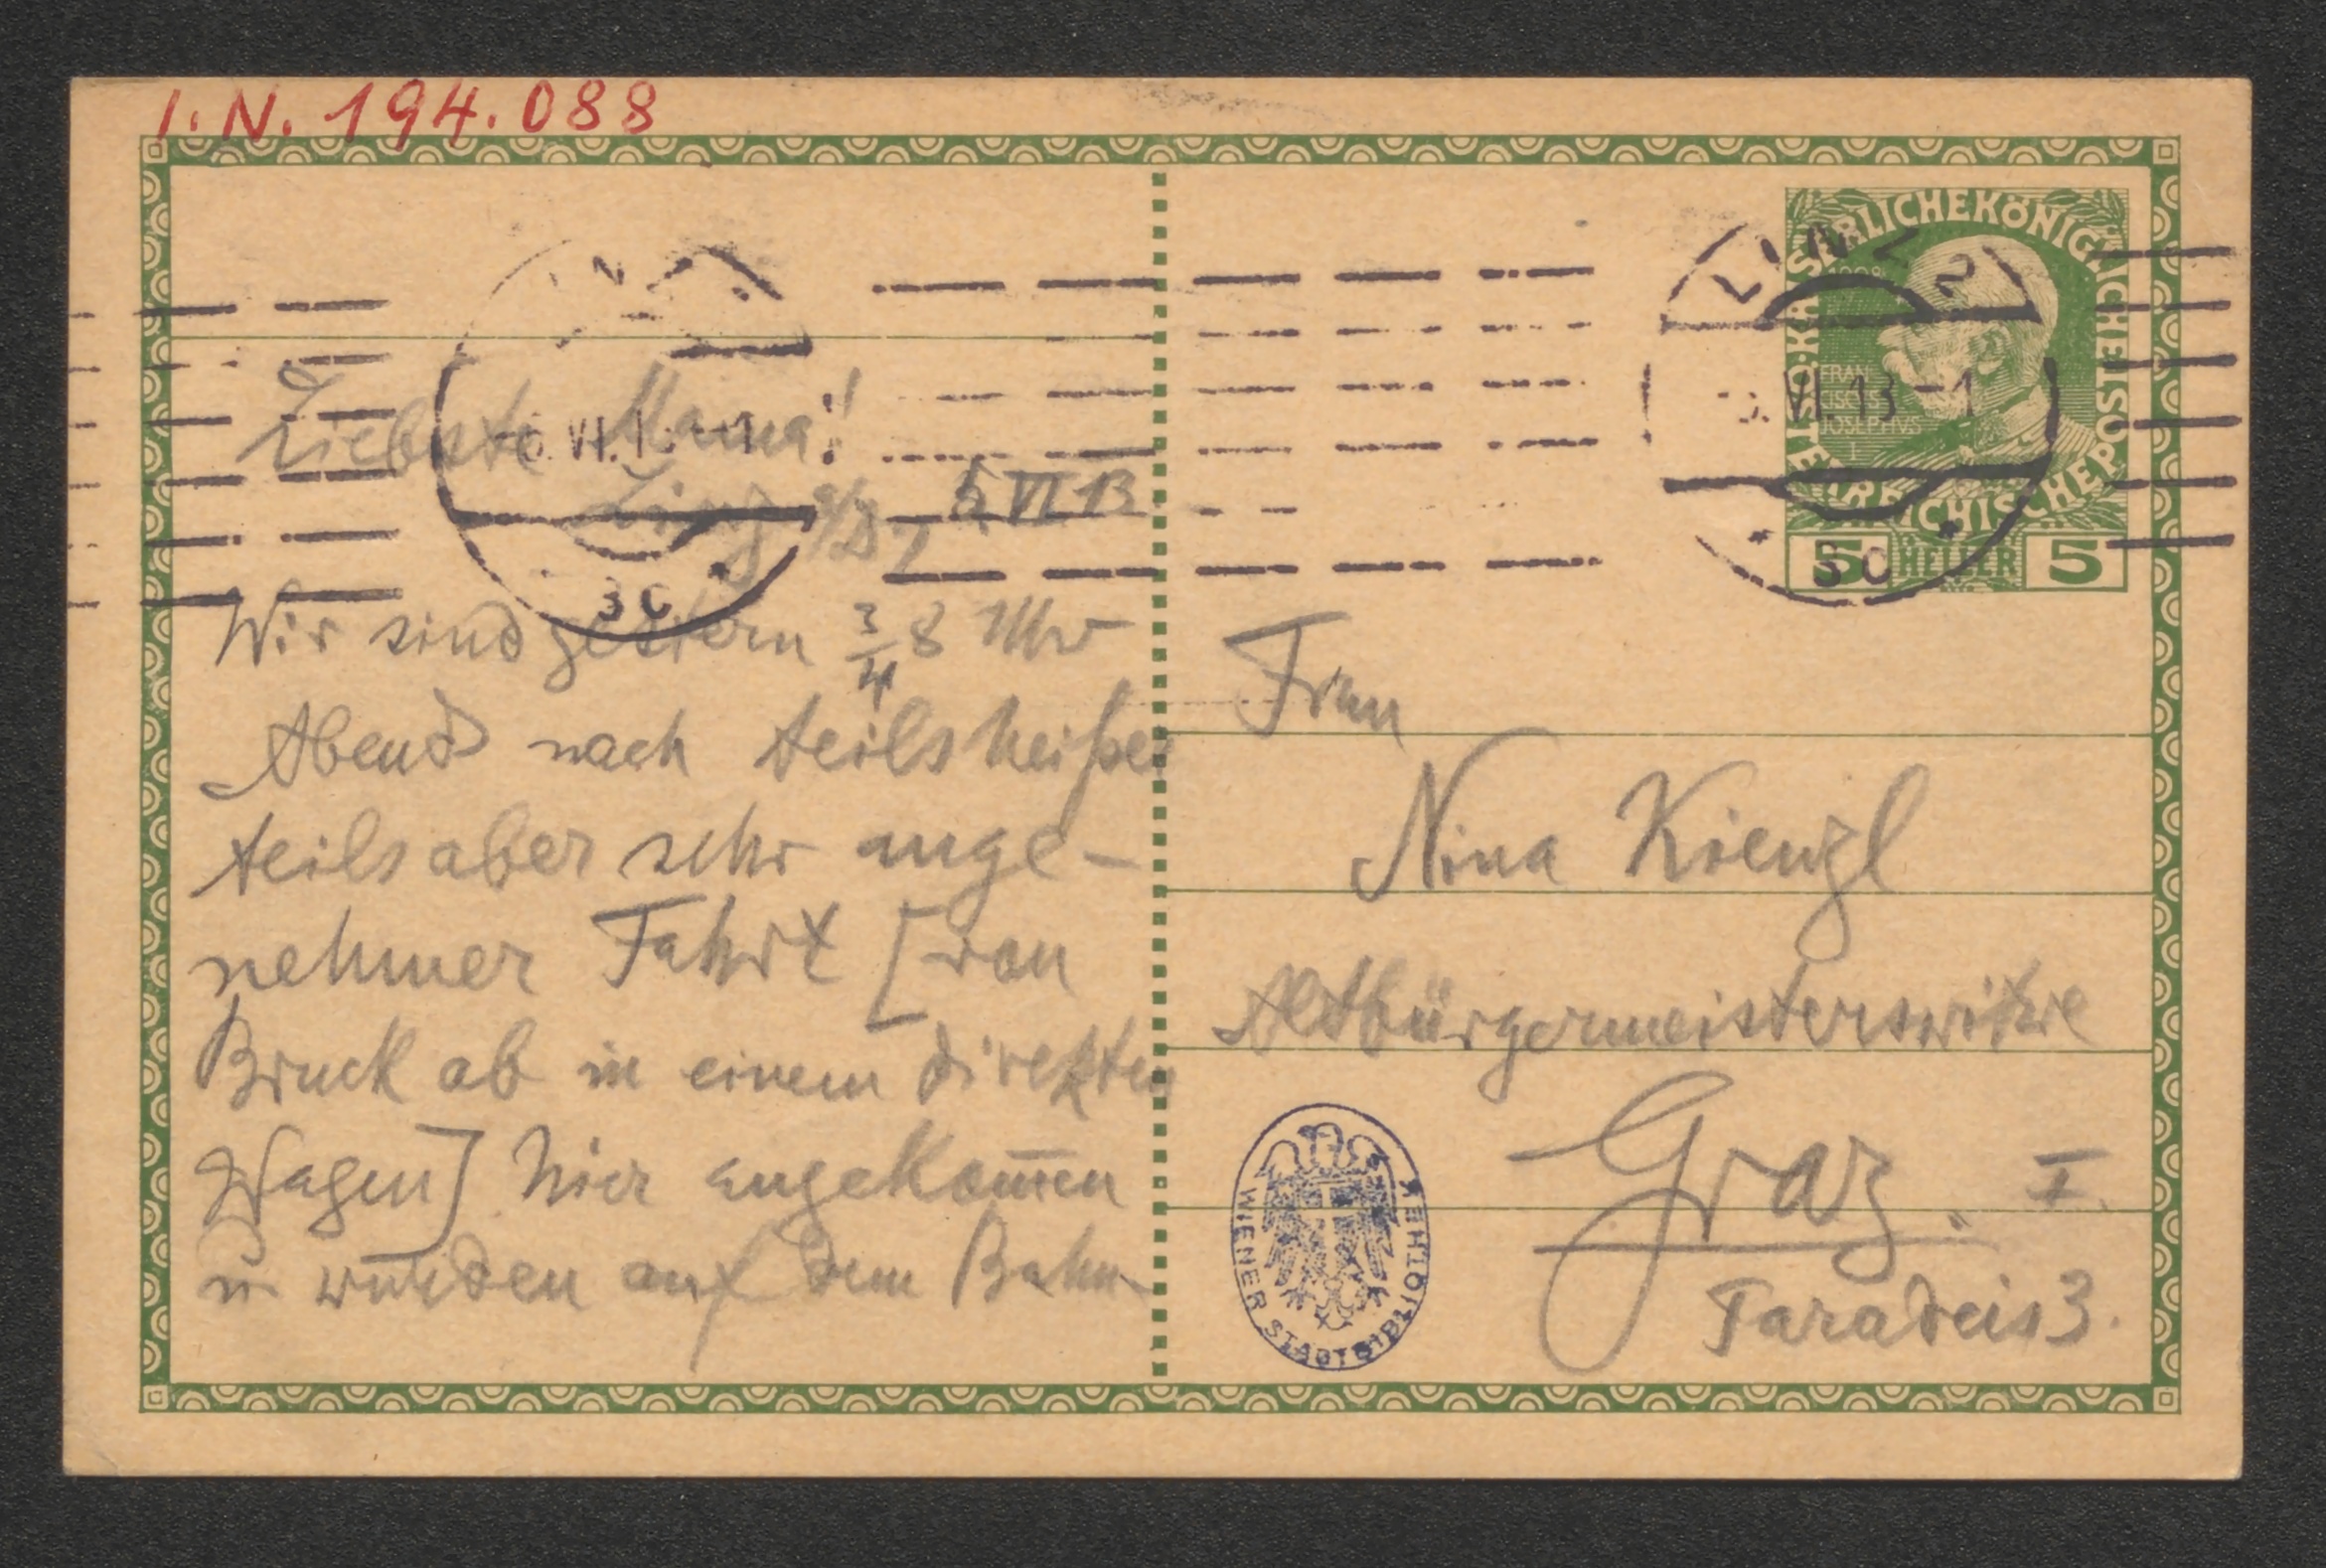 I.N. 194.088
Liebste Mama!
Linz a/D, 5 VI 13
Wir sind gestern 3/4 8 Uhr
Abend nach teils heißer
teils aber sehr ange-
nehmer Fahrt [von
Bruck ab in einem direkten
Wagen] hier angekom̅en
u. wurden auf dem Bahn-
LINZ 2
VI.13-1
3c
KAISERLICHEKÖNIGLICHEÖSTERREICHISCHEPOST
1908
FRAN
CISCVS
JOSEPHVS
I
5 HELLER 5
Frau
Nina Kienzl
Altbürgermeisterswitwe
Graz. I.
Paradeis 3.
WIENER STADTBIBLIOTHEK